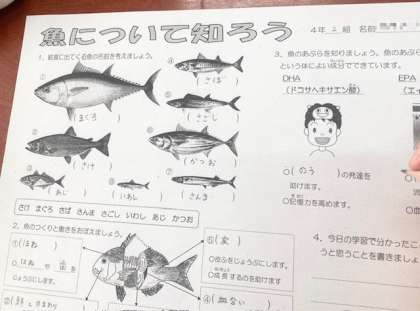 魚について知ろう
4年 2 組 名前
1, 給食に出てくる魚の名前を考えましょう。
①
(まぐろ)
②
(さけ)
(あじ)
④
(さば)
⑤
(さごし)
⑥
(かつお)
(いわし)
(さんま)
さけ まぐろ さば さんま さごし いわし あじ かつお
2, 魚のつくりと働きをおぼえましょう。
①(ほね)
○ほねや歯を
じょうぶにします。
⑤(皮)
○皮ふをじょうぶにします。
○成長するのを助けます
④(血合い)
3, 魚のあぶらを知りましょう。魚のあぶら
という体によい成分でできています。
DHA
(ドコサヘキサエン酸)
EPA
(エイ
○(のう)の発達を
助けます。
○記憶力を高めます。
4, 今日の学習で分かったこ
うと思うことを書きましょ